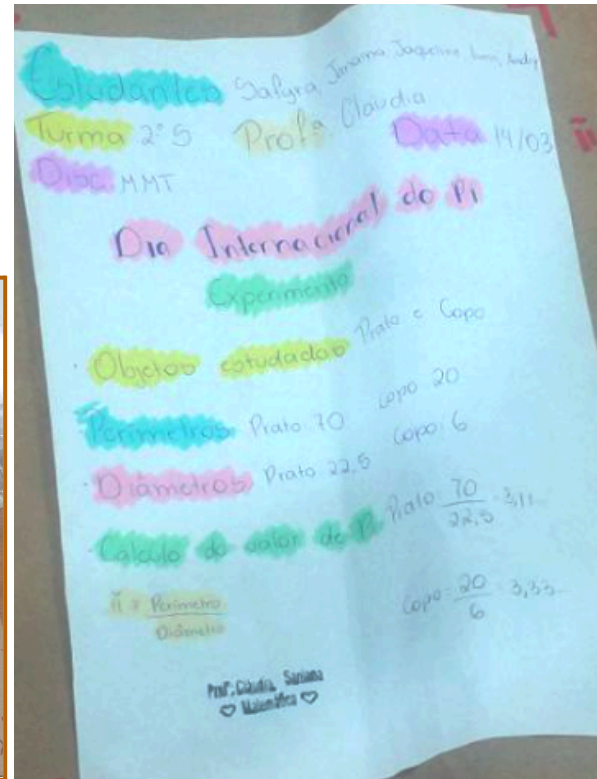 Estudantes Safyra,
Turma 2º S Profª Claudia Data 14/03
Disc: MMT
Dia Internacional do Pi
Experimento
· Objetos estudados Prato e Copo
Perímetros Prato: 70 copo 20
· Diâmetros Prato 22,5 Copo: 6
· Calculo do valor de Pi Prato: 70/22,5 = 3,11...
π = Perímetro/Diâmetro Copo: 20/6 = 3,33...
Profª. Cláudia Santana
♡ Matemática ♡